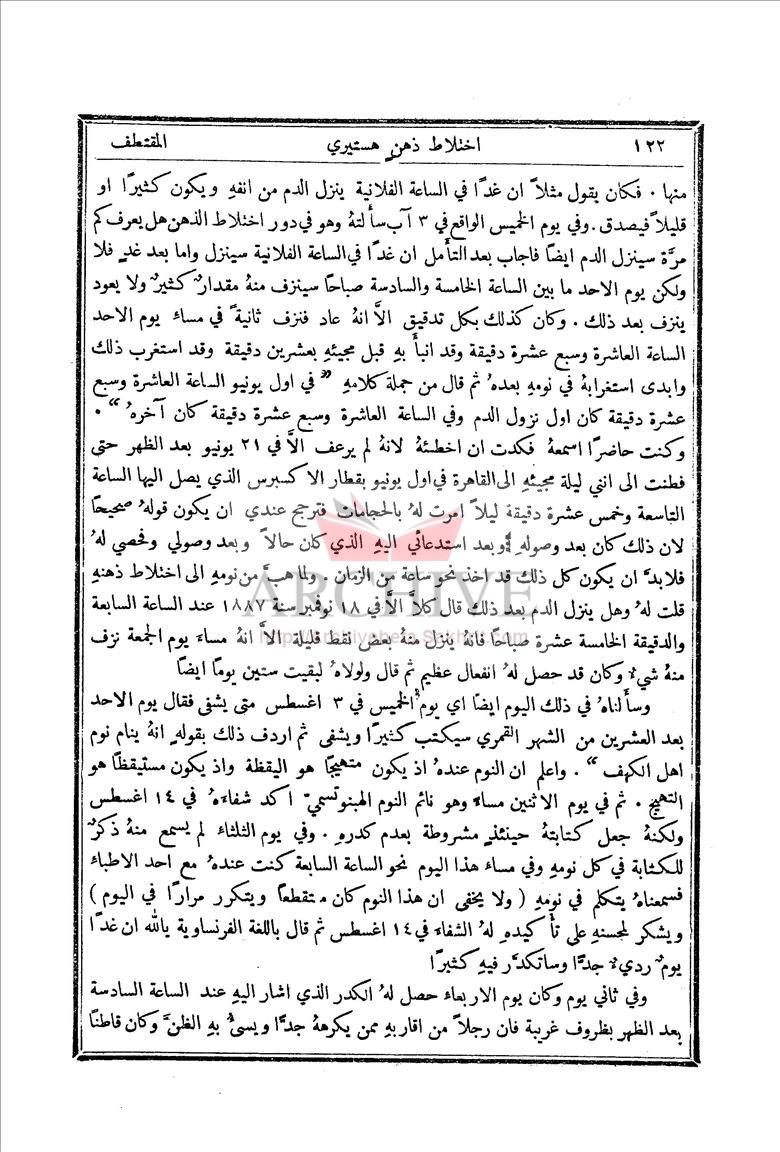 ١٢٢ اختلاط ذهنٍ هستيري المقتطف
منها ٠ فكان يقول مثلاً ان غدًا في الساعة الفلانية ينزل الدم من انفهِ ويكون كثيرًا او
قليلاً فيصدق. وفي يوم الخميس الواقع في ٣ آب سأَلتهُ وهو في دور اختلاط الذهن هل يعرف كم
مرَّة سينزل الدم ايضًا فاجاب بعد التأمل ان غدًا في الساعة الفلانية سينزل واما بعد غدٍ فلا
ولكن يوم الاحد ما بين الساعة الخامسة والسادسة صباحًا سينزف منهُ مقدارٌ كثيرٌ ولا يعود
ينزف بعد ذلك . وكان كذلك بكل تدقيق الاَّ انهُ عاد فنزف ثانيةً في مساء يوم الاحد
الساعة العاشرة وسبع عشرة دقيقة وقد انبأَ بهِ قبل مجيئهِ بعشرين دقيقة وقد استغرب ذلك
وابدى استغرابهُ في نومهِ بعدهُ ثم قال من جملة كلامهِ ” في اول يونيو الساعة العاشرة وسبع
عشرة دقيقة كان اول نزول الدم وفي الساعة العاشرة وسبع عشرة دقيقة كان آخرهُ “ ٠
وكنت حاضرًا اسمعهُ فكدت ان اخطئهُ لانهُ لم يرعف الاَّ في ٢١ يونيو بعد الظهر حتى
فطنت الى انني ليلة مجيئهِ الى القاهرة في اول يونيو بقطار الاكسبرس الذي يصل اليها الساعة
التاسعة وخمس عشرة دقيقة ليلاً امرت لهُ بالحجامات فترجح عندي ان يكون قولهُ صحيحًا
لان ذلك كان بعد وصولهِ وبعد استدعائي اليهِ الذي كان حالاً وبعد وصولي وفحصي لهُ
فلابدَّ ان يكون كل ذلك قد اخذ نحو ساعة من الزمان . ولما هبَّ من نومهِ الى اختلاط ذهنهِ
قلت لهُ وهل ينزل الدم بعد ذلك قال كلاَّ الاَّ في ١٨ نوفمبر سنة ١٨٨٧ عند الساعة السابعة
والدقيقة الخامسة عشرة صباحًا فانهُ ينزل منهُ بعض نقط قليلة الاَّ انهُ مساء يوم الجمعة نزف
منهُ شيءٌ وكان قد حصل لهُ انفعال عظيم ثم قال ولولاهُ لبقيت ستين يومًا ايضًا
وسأَلناهُ في ذلك اليوم ايضًا اي يوم الخميس في ٣ اغسطس متى يشفى فقال يوم الاحد
بعد العشرين من الشهر القمري سيكتب كثيرًا ويشفى ثم اردف ذلك بقولهِ انهُ ينام نوم
اهل الكهف “ . واعلم ان النوم عندهُ اذ يكون متهيجًا هو اليقظة واذ يكون مستيقظًا هو
التهيج ٠ ثم في يوم الاثنين مساءً وهو نائم النوم الهبنوتسميّ اكد شفاءَهُ في ١٤ اغسطس
ولكنهُ جعل كتابتهُ حينئذٍ مشروطة بعدم كدرهِ . وفي يوم الثلثاء لم يسمع منهُ ذكرٌ
للكتابة في كل نومهِ وفي مساء هذا اليوم نحو الساعة السابعة كنت عندهُ مع احد الاطباء
فسمعناهُ يتكلم في نومهِ ( ولا يخفى ان هذا النوم كان متقطعًا ويتكرر مرارًا في اليوم )
ويشكر لمحسنهِ على تأكيدهِ لهُ الشفاء في ١٤ اغسطس ثم قال باللغة الفرنساوية يالله ان غدًا
يومٌ رديءٌ جدًّا وساتكدَّر فيهِ كثيرًا
وفي ثاني يوم وكان يوم الاربعاء حصل لهُ الكدر الذي اشار اليهِ عند الساعة السادسة
بعد الظهر بظروف غريبة فان رجلاً من اقاربهِ ممن يكرههُ جدًّا ويسيءُ بهِ الظنَّ وكان قاطنًا
ARCHIVE